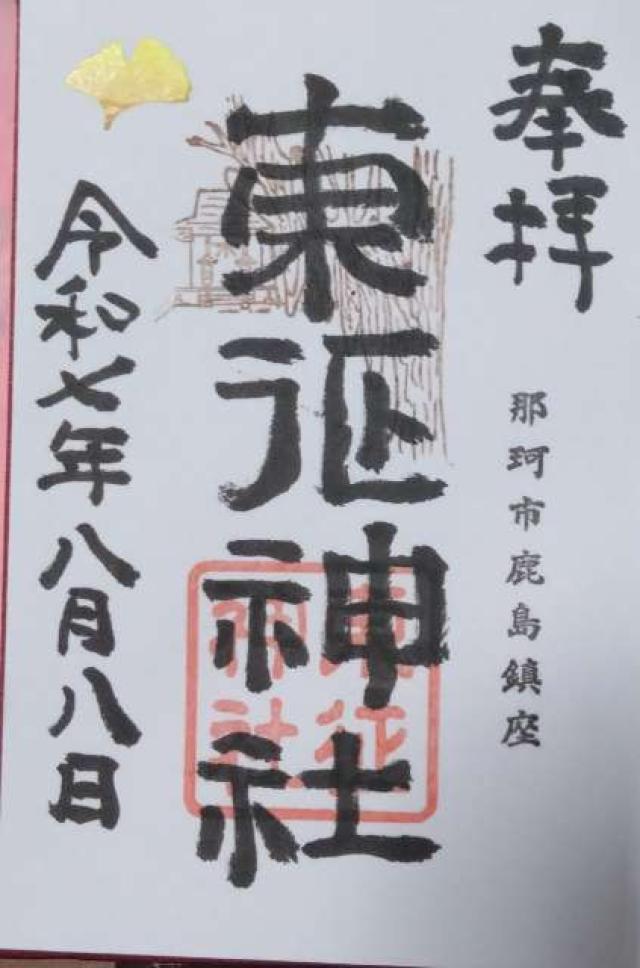 奉拝
那珂市鹿島鎮座
東征神社
東征神社
令和七年八月八日